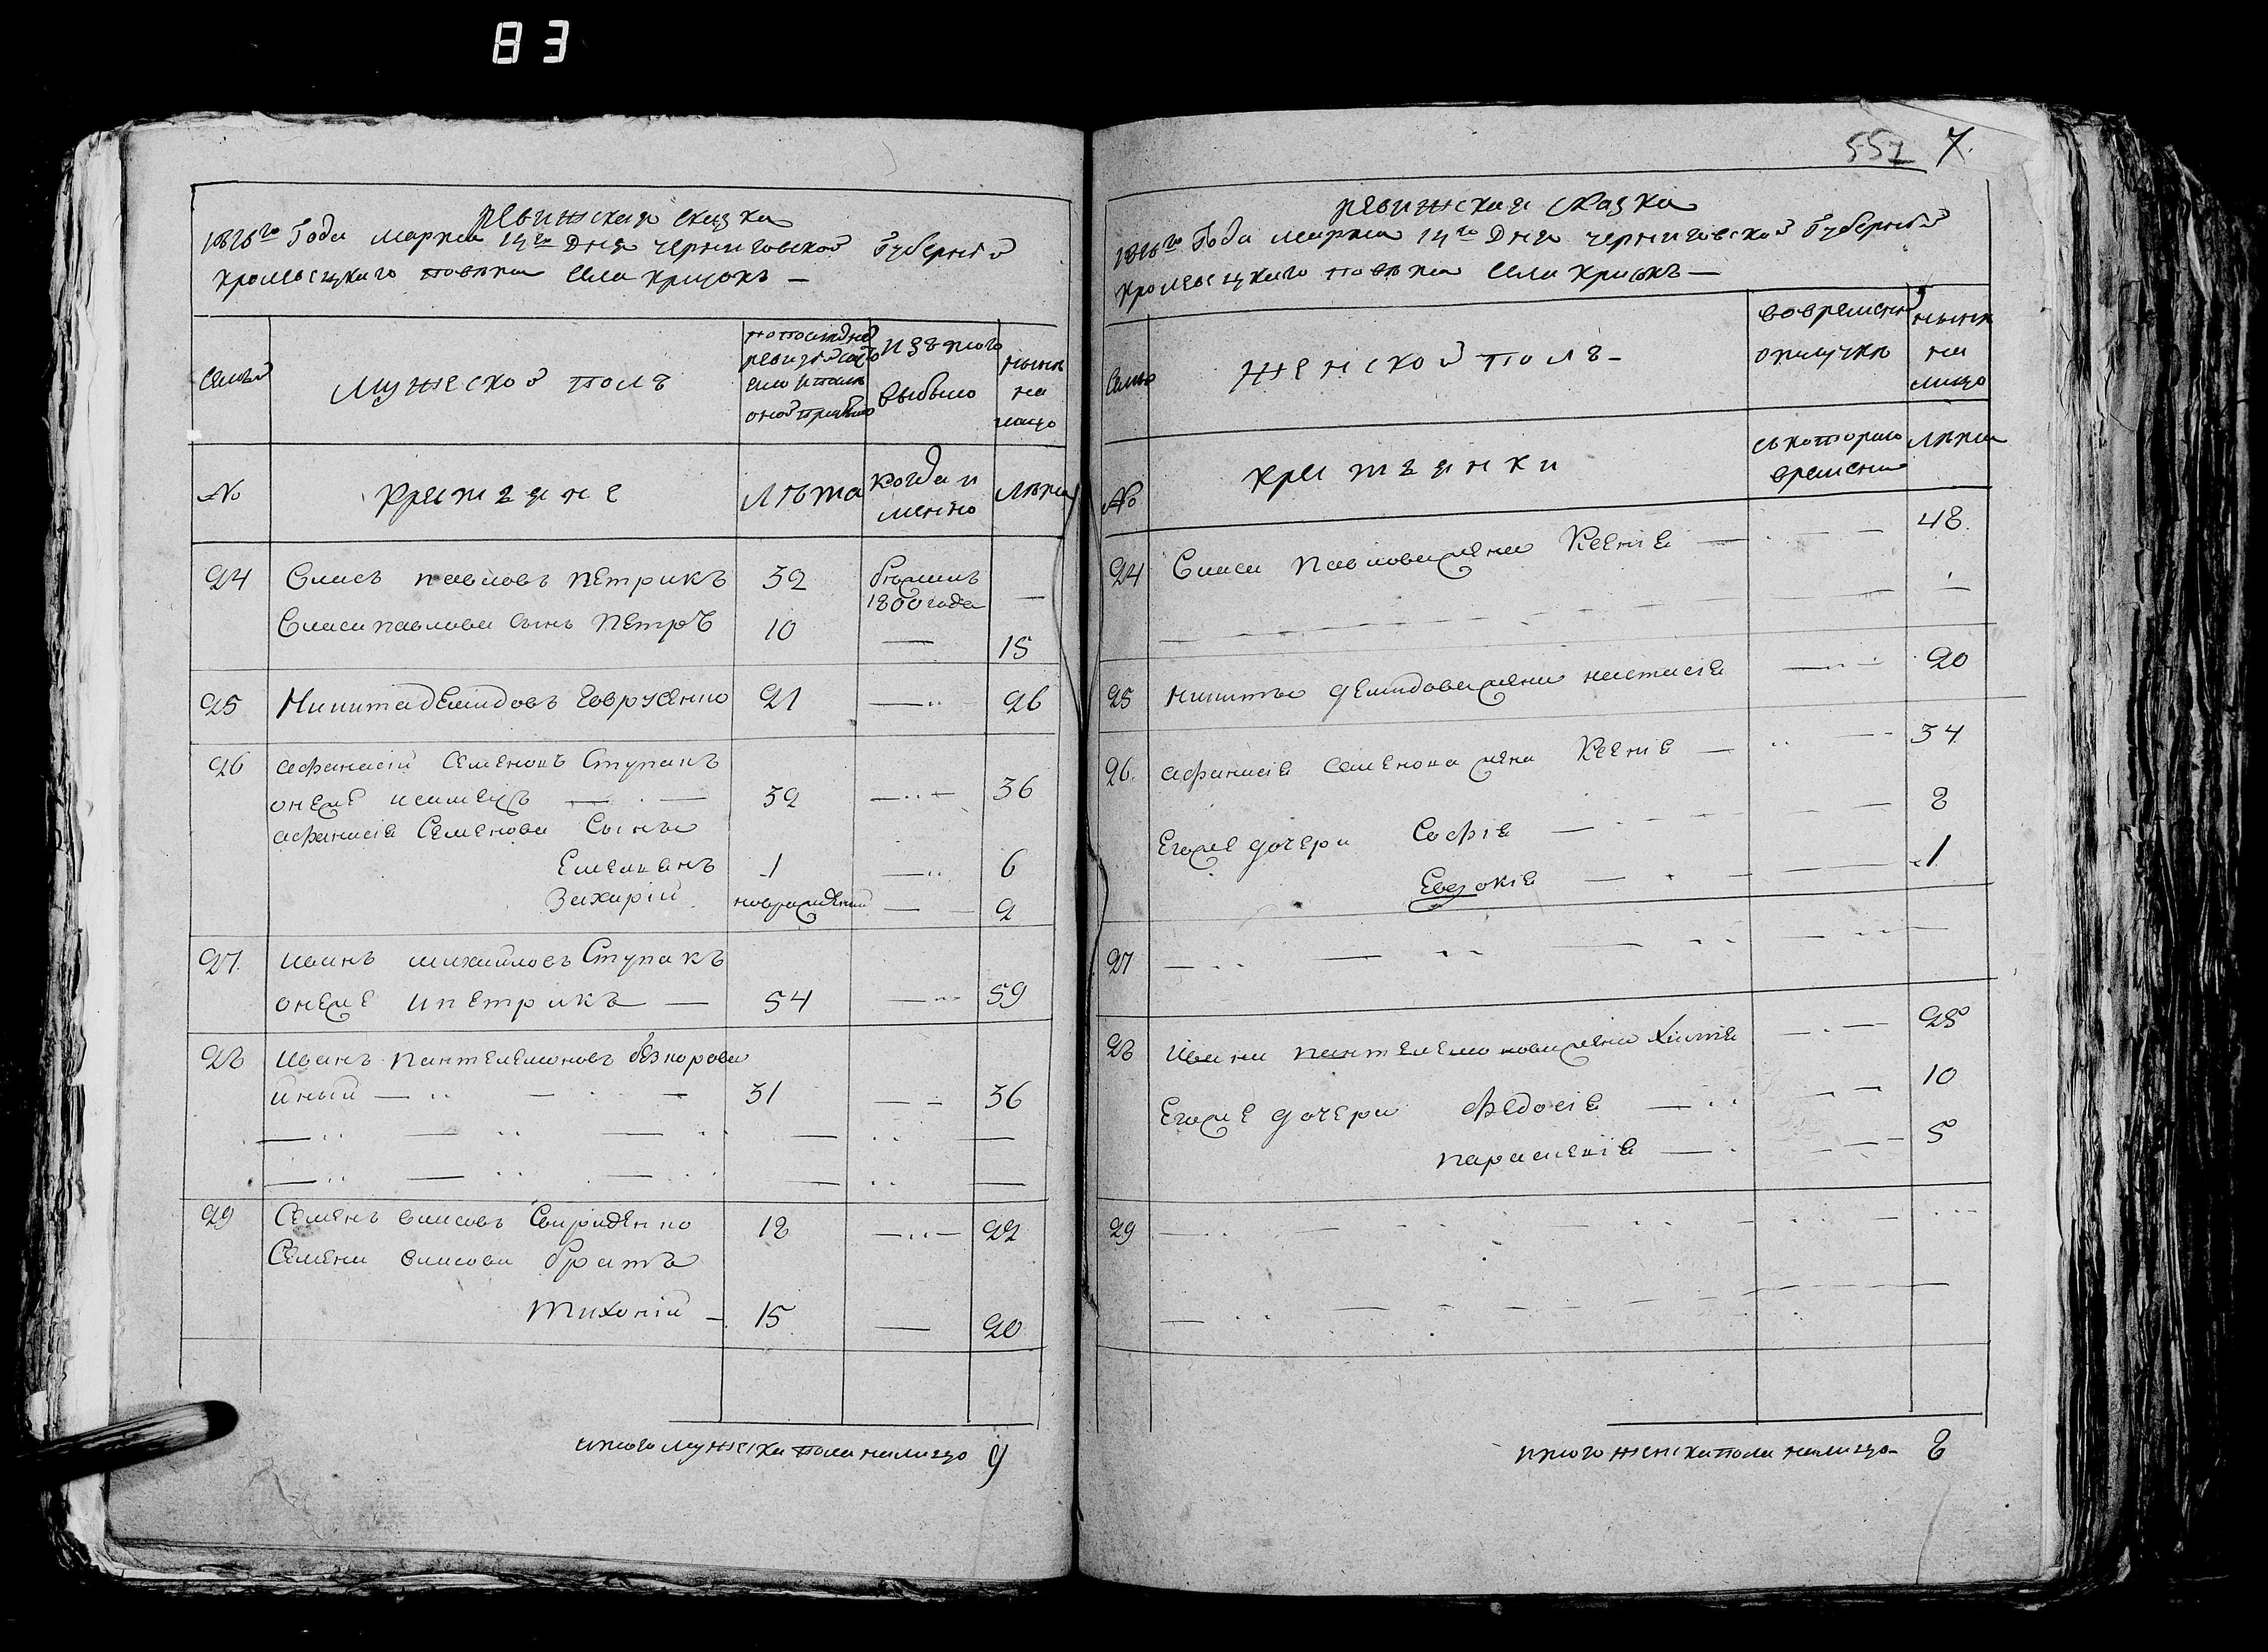 83
ревижская сказка
1816го Года марта 14го Дня черниговской Губерний
кролевецкаго повѣта села крисокъ —
Семьи
мужеской полъ
по последней
ревизіи состо
яло и послѣ
оной прибыло
изъ того
выбыло
нынѣ
на
лицо
№
крестьяне
лѣта
когда и
менно
лѣта
24 Власъ павловъ петрикъ 32 бѣжалъ
1800 года —
Власа павлова сынъ петръ 10 — 15
25 Никита демидовъ Говрусенко 21 — 26
26 афанасій семеновъ Ступакъ
онеже 32 — 36
афанасіе Семенова Сыны
Емельянъ 1 — 6
Захарій новорожденній — 2
27 иванъ михайловъ Ступакъ
онеже ипетрикъ — 54 — 59
28 иванъ пантелемоновъ безкорова
иный — 31 — 36
29 Семенъ власовъ Свириденко 18 — 22
Семена власова братъ
Тихоній — 15 — 20
итого мужеска пола налицо 9
552 7.
ревижская сказка
1816го Года марта 14го Дня черниговской Губерній
кролевецкаго повѣта села крисокъ —
Семьи
женской полъ —
вовремен
отлучкѣ
нынѣ
на
лицо
№
крестьянки
съ котораго
времени
лѣта
24 Власа павлова жена Ксеніе — 48
25 никиты демидова жена настасіе — 20
26. афанасіе семенова жена Ксеніе — 34
Егоже дочери Софіе — 8
Евдокіе — 1
27 —
28 ивана пантелемонова жена 28
Егоже дочери Федосіе — 10
параскевіе — 5
29 —
итого женска пола налицо — 8